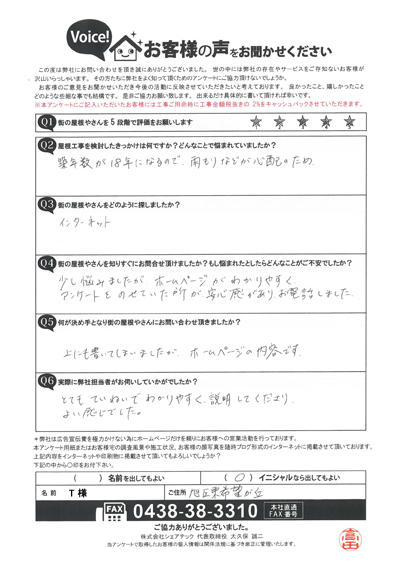 Voice!
お客様の声をお聞かせください
この度は弊社にお問い合わせを頂き誠にありがとうございました。 世の中には弊社の存在やサービスをご存知ないお客様が
沢山いらっしゃいます。 その方たちに弊社をよく知って頂くためのアンケートにご協力頂けないでしょうか。
お客様のご意見をお聞かせいただき今後の活動に反映させていただきたいと考えております。 良かったこと、嬉しかったこと
どのような些細な事でも結構です。 是非ご協力お願い致します。 出来るだけ具体的に書いて頂ければ幸いです。
※本アンケートにご記入いただいたお客様には工事ご用命時に工事金額税抜きの 2%をキャッシュバックさせていただきます。
Q1 街の屋根やさんを 5 段階で評価をお願いします ★ ★ ★ ★ ★
Q2 屋根工事を検討したきっかけは何ですか？どんなことで悩まれていましたか？
築年数が18年になるので、雨もりなどが心配のため
Q3 街の屋根やさんをどのように探しましたか？
インターネット
Q4 街の屋根やさんを知りすぐにお問合せ頂けましたか？もし悩まれたとしたらどんなことがご不安でしたか？
少し悩みましたが、ホームページがわかりやすく
アンケートをのせていた所が安心感がありお電話しました。
Q5 何が決め手となり街の屋根やさんにお問い合わせ頂きましたか？
上にも書いてしまいましたが、ホームページの内容です。
Q6 実際に弊社担当者がお伺いしていかがでしたか？
とてもていねいでわかりやすく、説明してくださり、
よい感じでした。
＊弊社は広告宣伝費を極力かけない為にホームページだけを頼りにお客様への営業活動を行っております。
本アンケート用紙またはお客様宅の調査風景や施工状況、お客様の顔写真を随時ブログ形式のインターネットに掲載させて頂いております。
上記内容をインターネットや印刷物に掲載させて頂いてもよろしいでしょうか？
下記の中から○印をお付下さい。
（　）名前を出してもよい （○）イニシャルなら出してもよい
名 前 T 様 ご住所
FAX 0438-38-3310 本社直通 FAX 番号
ご協力ありがとうございました。
株式会社シェアテック 代表取締役 太久保 誠二
当アンケートで取得したお客様の個人情報は関係法規に基づき厳正に管理いたします。